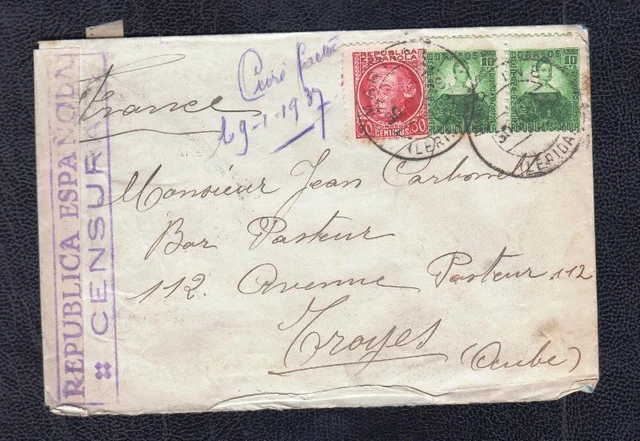 REPUBLICA ESPAÑOLA
CENSURA
France
29-1-1937
REPUBLICA
ESPAÑOLA
30 CENTIMOS 30
CORREOS 10
10
(LERIDA)
(LERIDA)
Monsieur Jean Carbone
Bar Pasteur
112. Avenue Pasteur 112
Troyes
(Aube)